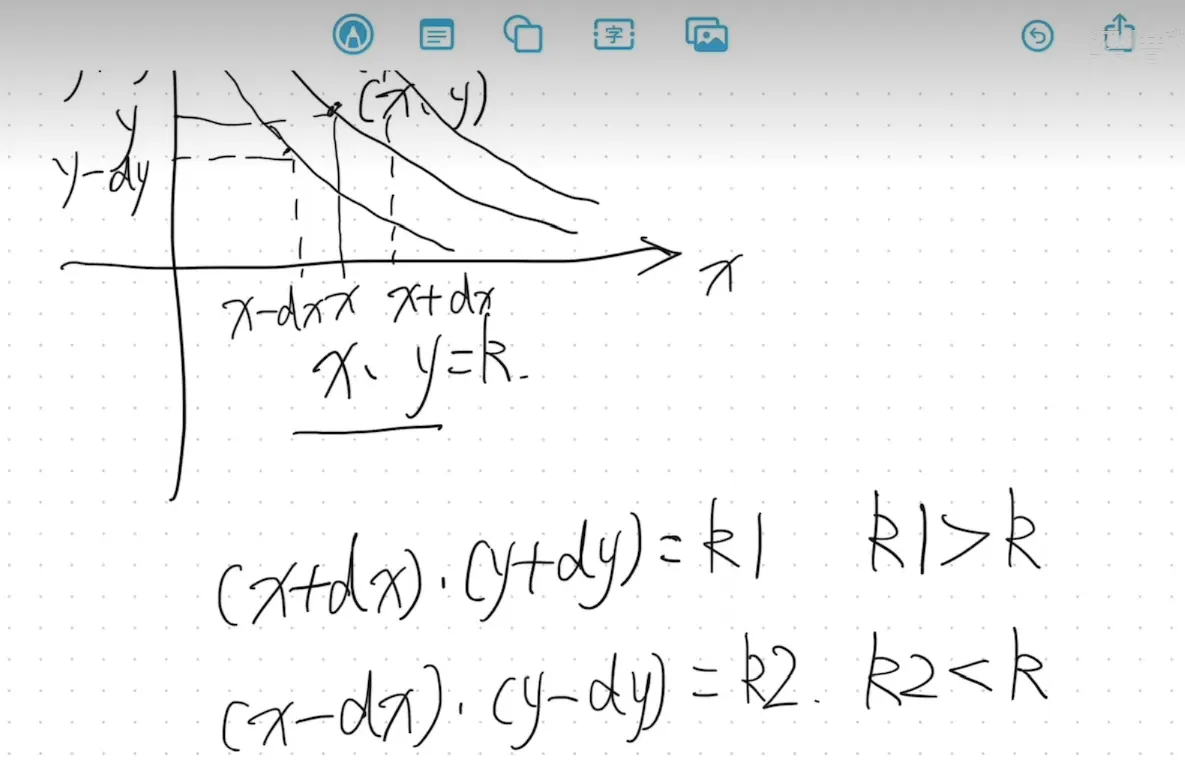 (x、y)
y
y-dy
x
x-dx x x+dx
x、y=k.
(x+dx)·(y+dy)=k1 k1>k
(x-dx)·(y-dy)=k2. k2<k
字